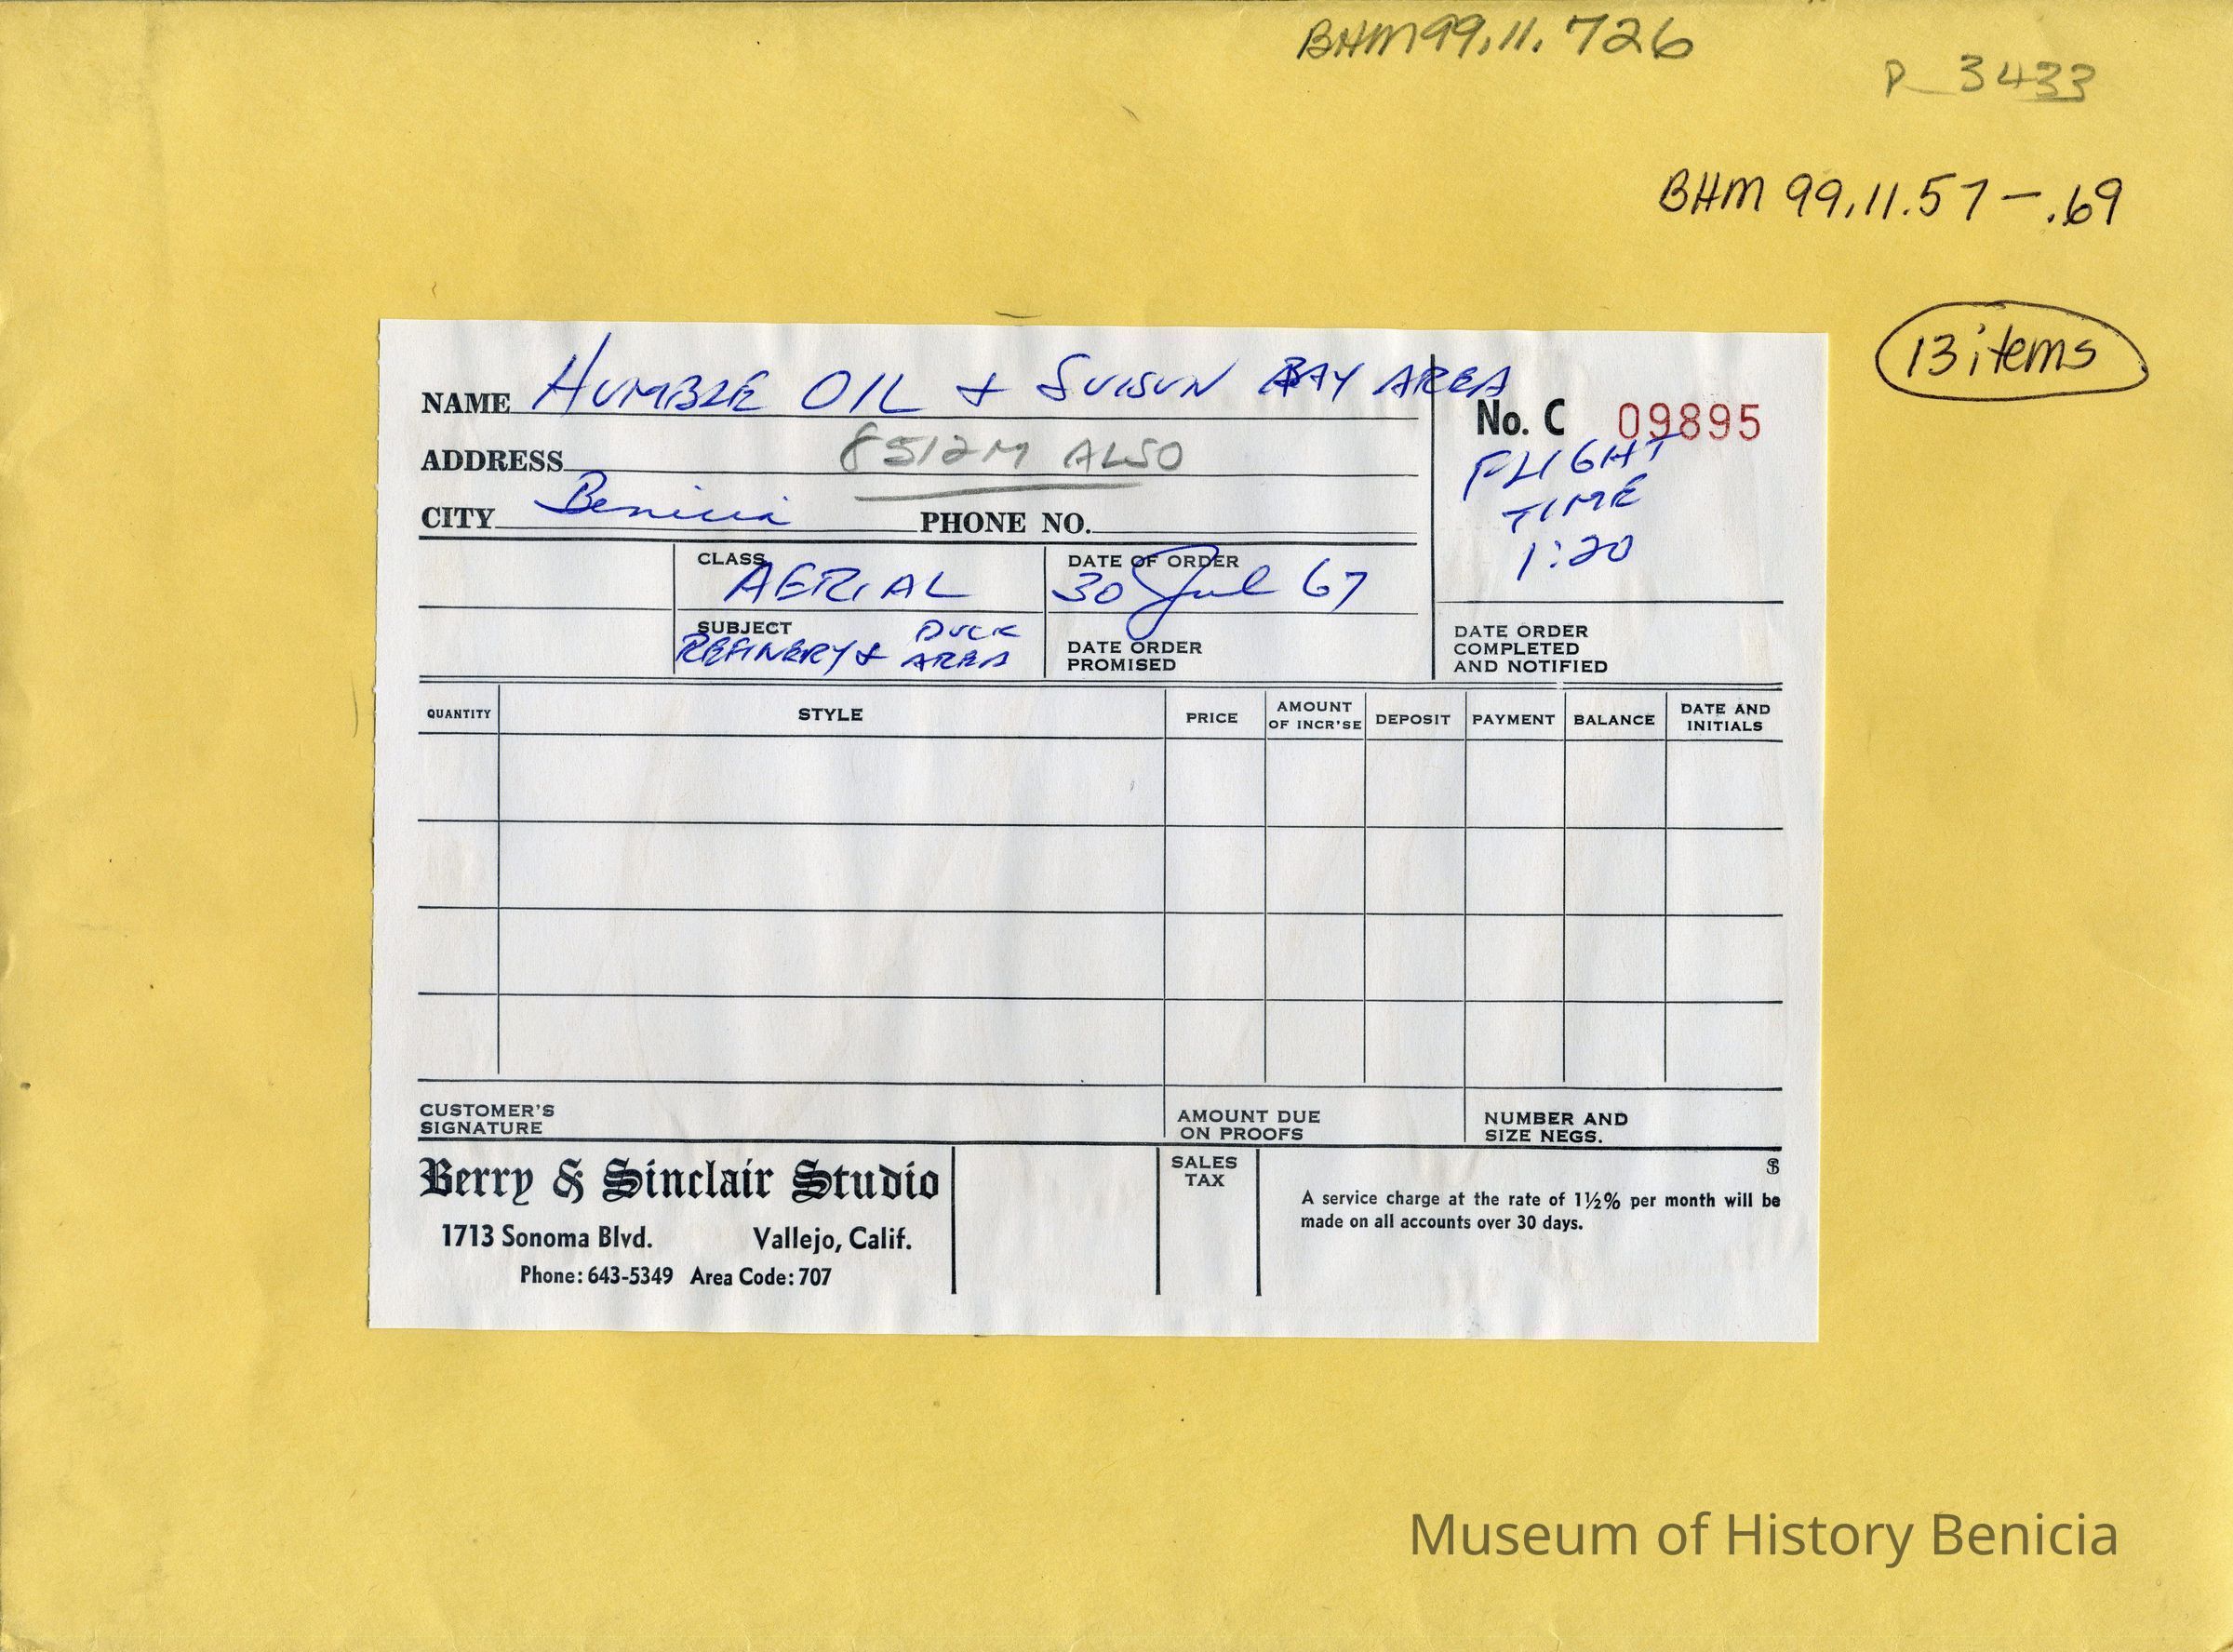 BHM99.11.726
P_3433
BHM 99.11.57-.69
13 items
NAME HUMBLE OIL & SUISUN BAY AREA
No. C 09895
ADDRESS 8512M ALSO
FLIGHT
TIME
1:20
CITY Benicia PHONE NO.
CLASS AERIAL
DATE OF ORDER 30 Jul 67
SUBJECT REFINERY & DUCK AREA
DATE ORDER
PROMISED
DATE ORDER
COMPLETED
AND NOTIFIED
QUANTITY STYLE PRICE AMOUNT OF INCR'SE DEPOSIT PAYMENT BALANCE DATE AND INITIALS
CUSTOMER'S
SIGNATURE
AMOUNT DUE
ON PROOFS
NUMBER AND
SIZE NEGS.
Berry & Sinclair Studio
1713 Sonoma Blvd. Vallejo, Calif.
Phone: 643-5349 Area Code: 707
SALES
TAX
$
A service charge at the rate of 1½% per month will be
made on all accounts over 30 days.
Museum of History Benicia